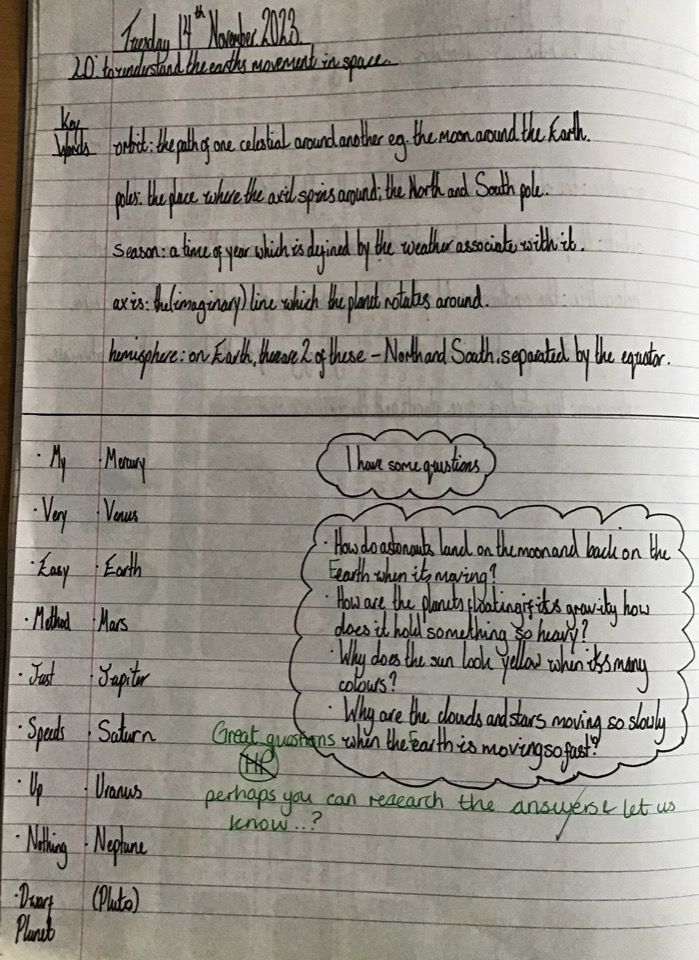 Tuesday 14th November 2023
LO: to understand the earths movement in space.
Key Words
orbit: the path of one celestial around another eg. the moon around the Earth.
poles: the place where the axil spins around; the North and South pole.
Season: a time of year which is defined by the weather associate with it.
axis: the (imaginary) line which the planet rotates around.
hemisphere: on Earth, there are 2 of these - North and South, separated by the equator.
· My · Mercury
· Very · Venus
· Easy · Earth
· Method · Mars
· Just · Jupiter
· Speeds · Saturn
· Up · Uranus
· Nothing · Neptune
· Dwarf Planet (Pluto)
I have some questions
· How do astonauts land on the moon and back on the
Eearth when its moving?
· How are the planets floating if its gravity how
does it hold something so heavy?
· Why does the sun look yellow when its many
colours?
· Why are the clouds and stars moving so slowly
when the Earth is moving so fast?
Great questions
HP
perhaps you can research the answers & let us
know...?